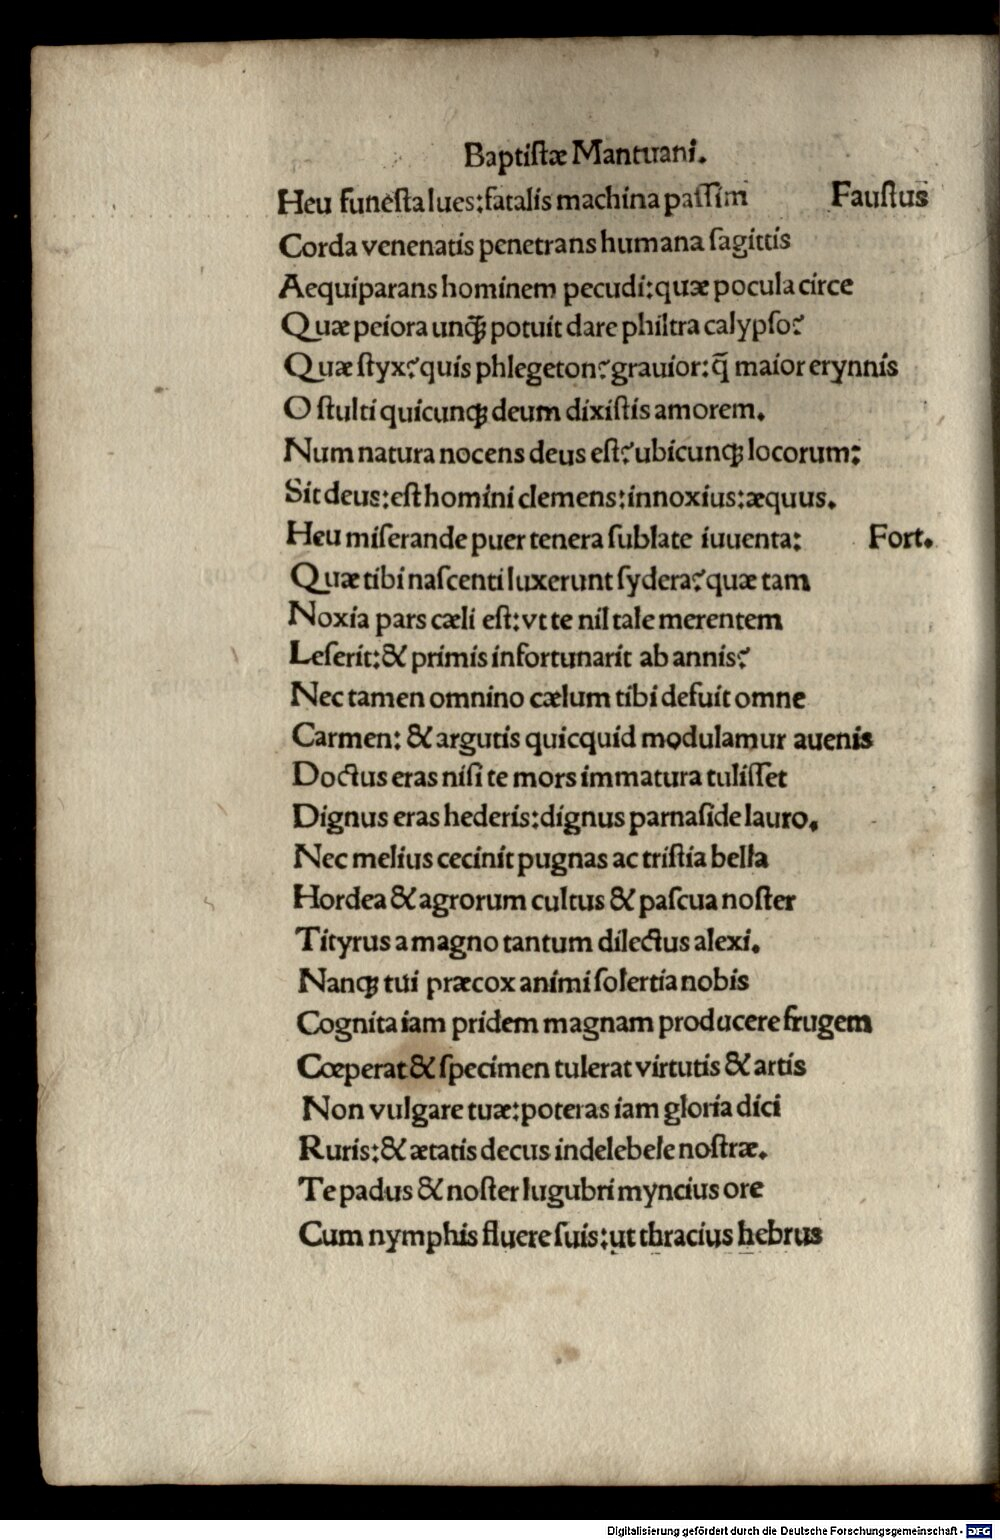 Baptiſtæ Mantuani.
Heu funeſta lues:fatalis machina paſſim Fauſtus
Corda venenatis penetrans humana ſagittis
Aequiparans hominem pecudi:quæ pocula circe
Quæ peiora unꝙ̃ potuit dare philtra calypſo?
Quæ ſtyx?quis phlegeton?grauior:q̃ maior erynnis
O ſtulti quicunqꝫ deum dixiſtis amorem.
Num natura nocens deus eſt?ubicunqꝫ locorum:
Sit deus:eſt homini clemens:innoxius:æquus.
Heu miſerande puer tenera ſublate iuuenta: Fort.
Quæ tibi naſcenti luxerunt ſydera?quæ tam
Noxia pars cæli eſt:vt te nil tale merentem
Leſerit:& primis infortunarit ab annis?
Nec tamen omnino cælum tibi defuit omne
Carmen: & argutis quicquid modulamur auenis
Doctus eras niſi te mors immatura tuliſſet
Dignus eras hederis:dignus parnaſide lauro.
Nec melius cecinit pugnas ac triſtia bella
Hordea & agrorum cultus & paſcua noſter
Tityrus a magno tantum dilectus alexi.
Nanqꝫ tui præcox animi ſolertia nobis
Cognita iam pridem magnam producere frugem
Cœperat & ſpecimen tulerat virtutis & artis
Non vulgare tuæ:poteras iam gloria dici
Ruris:& ætatis decus indelebele noſtræ.
Te padus & noſter lugubri myncius ore
Cum nymphis fluere ſuis:ut thracius hebrus
Digitalisierung gefördert durch die Deutsche Forschungsgemeinschaft - DFG